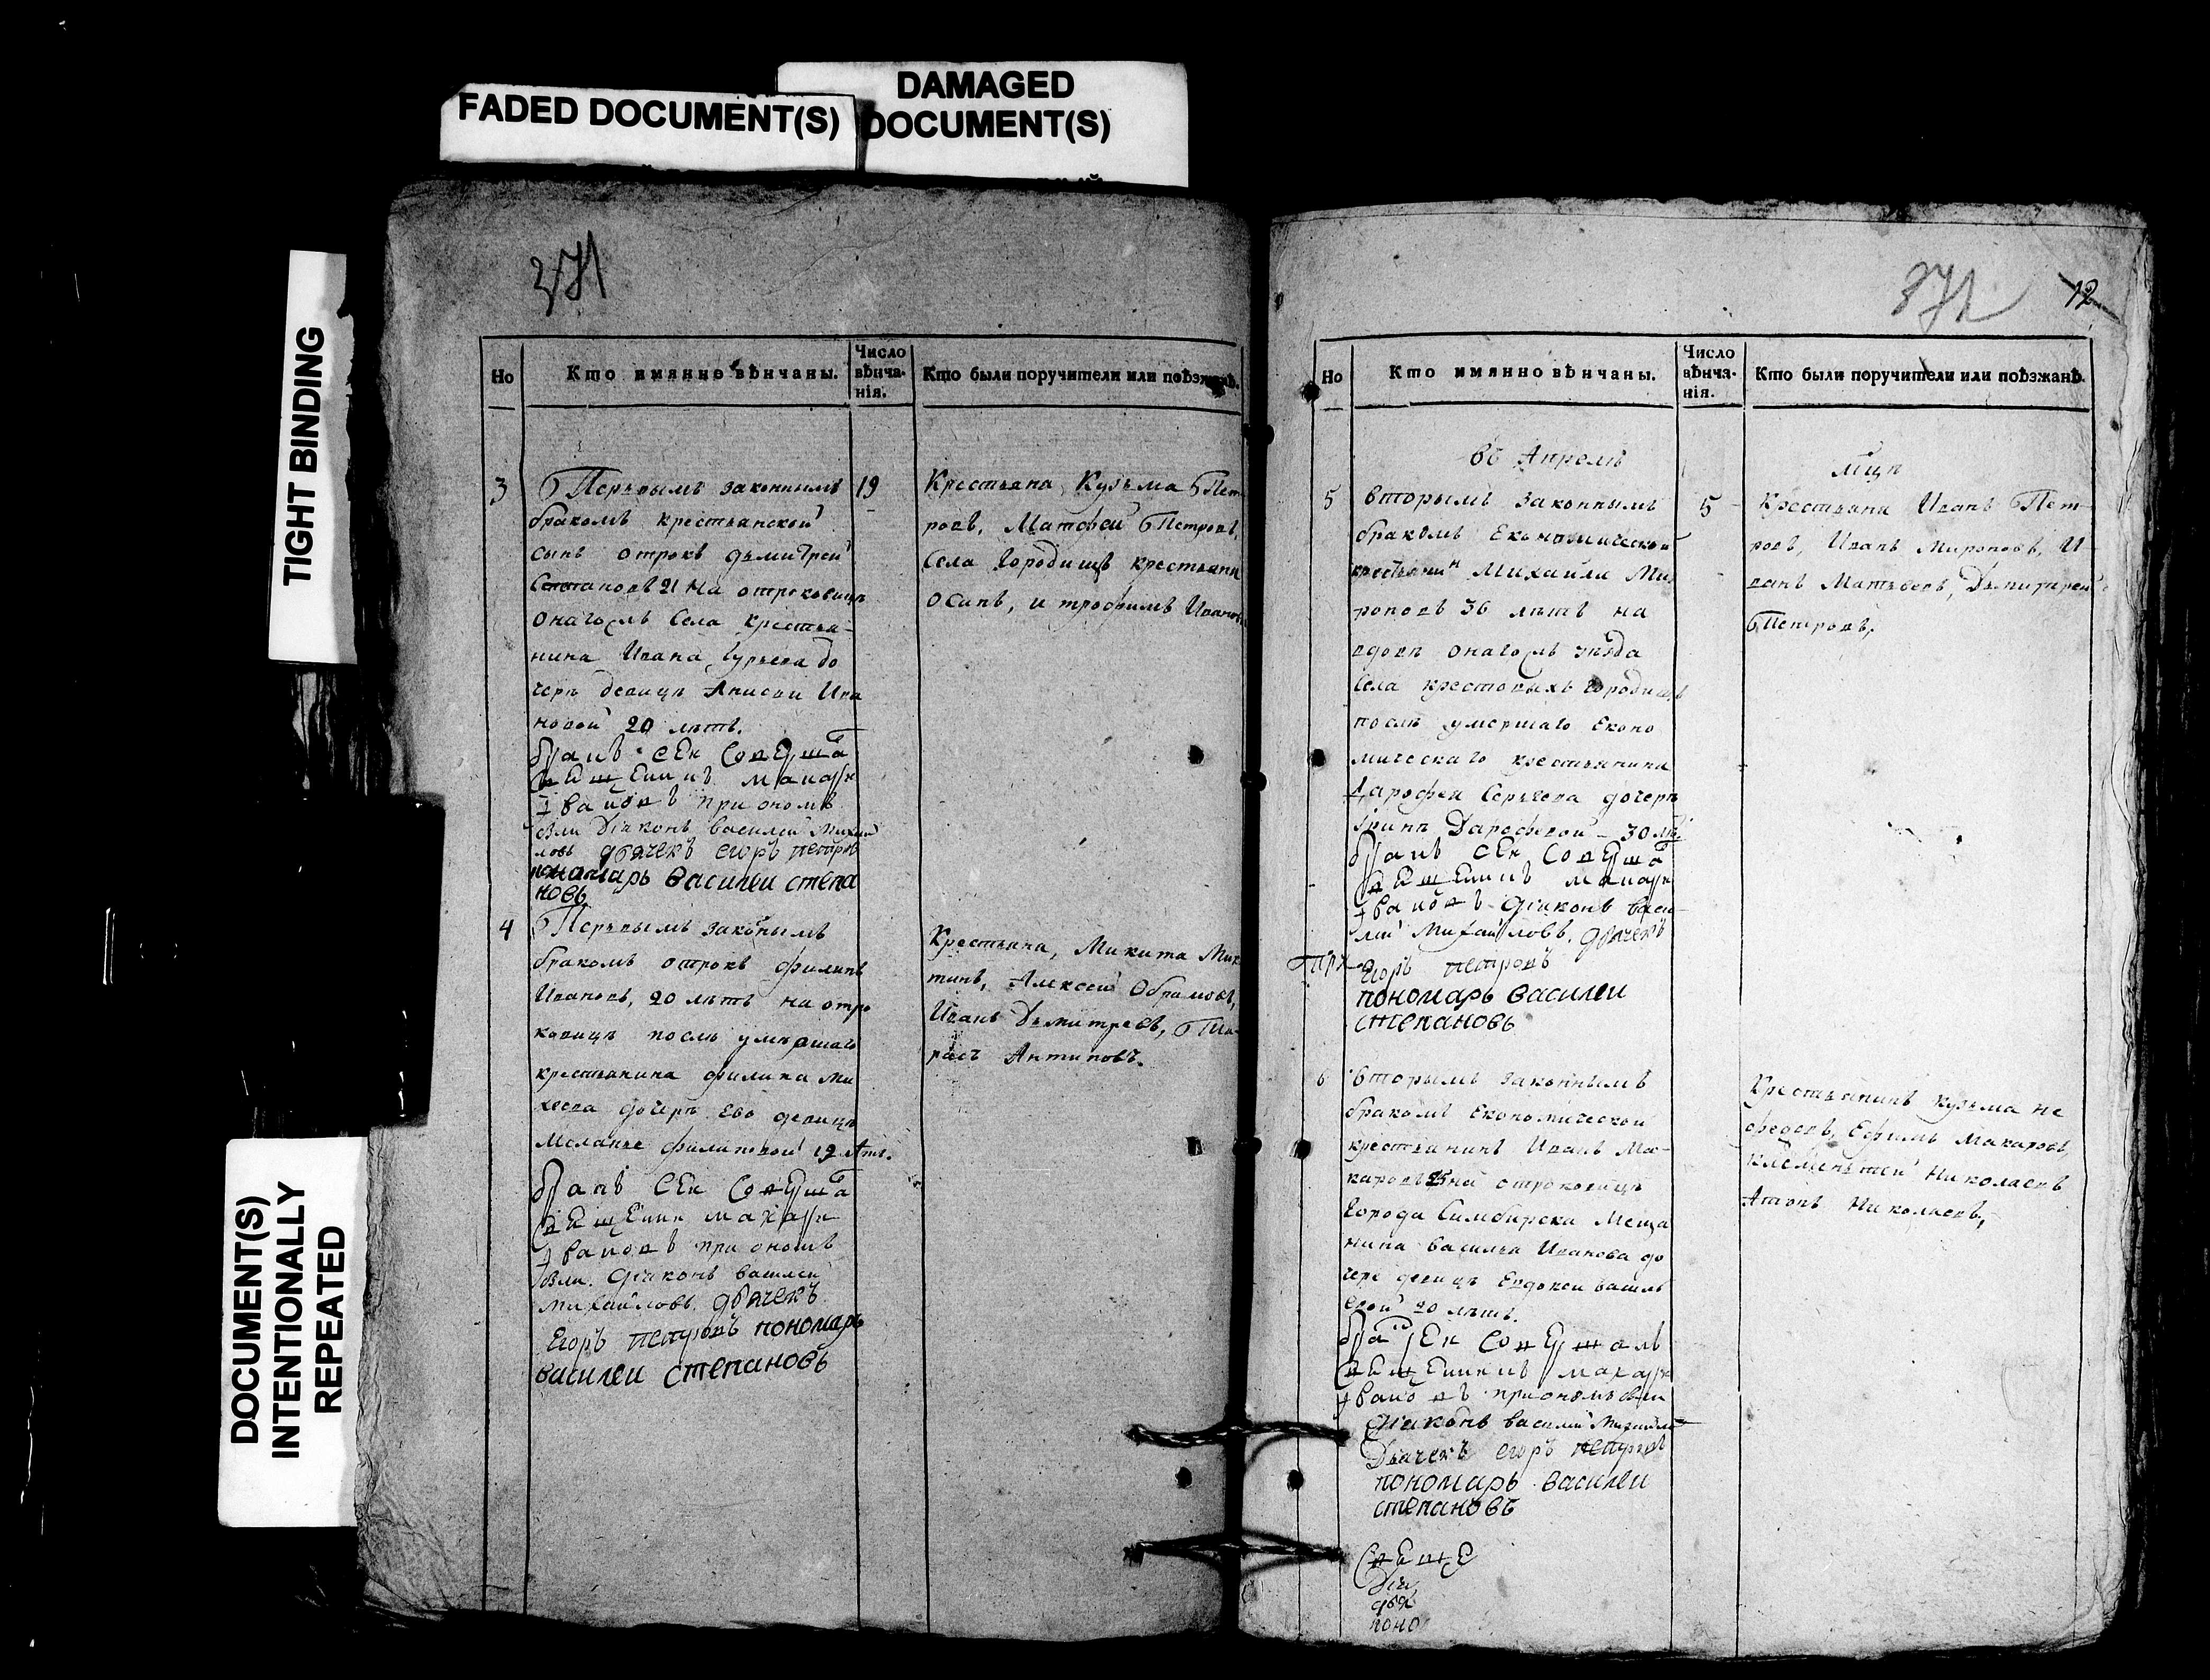 FADED DOCUMENT(S)
DAMAGED
DOCUMENT(S)
TIGHT BINDING
DOCUMENT(S)
INTENTIONALLY
REPEATED
371
Но
Кто имянно вѣнчаны.
Число
вѣнча-
нія.
Кто были поручители или поѣзжанѣ.
3
Перьвымъ законнымъ
бракомъ крестьянской
сынъ отрокъ дьмитрей
Степановъ 21 на отроковицѣ
онагожъ Села крестья-
нина Ивана Гурьева до
черѣ девицѣ Анисьи Ива
новой 20 лѣтъ.
бракъ сей Совершалъ
Священникъ Макаръ
Ивановъ при ономъ
были Діяконъ василей Михай
ловъ дьячекъ егоръ петровъ
пономарь василеи степа
новъ
19
Крестьяна, Кузьма Пет
ровъ, Матфей Петровъ,
Села Городищъ крестьяни
Осипъ, и трофимъ Иванов
4
Перьвымъ законымъ
бракомъ отрокъ филипъ
Ивановъ, 20 лѣтъ на отро
ковицѣ послѣ умершаго
крестьянина филипа Ми
хеева дочерѣ Ево девицѣ
Меланье филиповой 19 лѣтъ.
бракъ Сей Совершалъ
Священник макаръ
Ивановъ при ономъ
были. діяконъ василей
михайловъ. дьячекъ
Егоръ петровъ пономарь
василеи степановъ
Крестьяна, Микита Мик
тинъ, Алексей Обрамовъ,
Иванъ Дьмитревъ, Та-
расъ Антиповъ.
371
12
Но
Кто имянно вѣнчаны.
Число
вѣнча-
нія.
Кто были поручители или поѣзжанѣ.
въ Апрелѣ
мцѣ
5
вторымъ законнымъ
бракомъ Економической
крестьянинъ Михайла Ми
роновъ 36 лѣтъ на
вдовѣ онагожъ уѣзда
Села крестовыхъ городищъ
послѣ умершаго Еконо
мическаго крестьянина
Дарофея Сергеева дочерѣ
Иринѣ Дарофевой - 30 лѣ.
бракъ сей Совершалъ
Священникъ макаръ
Ивановъ діяконъ васи-
лей Михайловъ. дьячекъ
Егоръ петровъ
пономарь василеи
степановъ
5
Крестьяна Иванъ Пет-
ровъ, Иванъ Мироновъ, И-
ванъ Матьвеевъ, Дьмитрей
Петровъ,
6
вторымъ законнымъ
бракомъ Економической
крестьянинъ Иванъ Ма-
каровъ 25 на отроковицѣ
города Симбирска Меща
нина василья Иванова до
чере девицѣ Евдокеи василь
евой 20 лѣтъ.
бракъ Сей Совершалъ
Священникъ макаръ
Ивановъ при ономъ были
діяконъ василей Михайло
Дьячекъ егоръ петровъ
пономарь василеи
степановъ
Крестьянинъ кузьма не
федовъ, Ефимъ Макаровъ,
клеменьтей Николаевъ
Антонъ Николаевъ,
Свяще
Дія
дья
поно